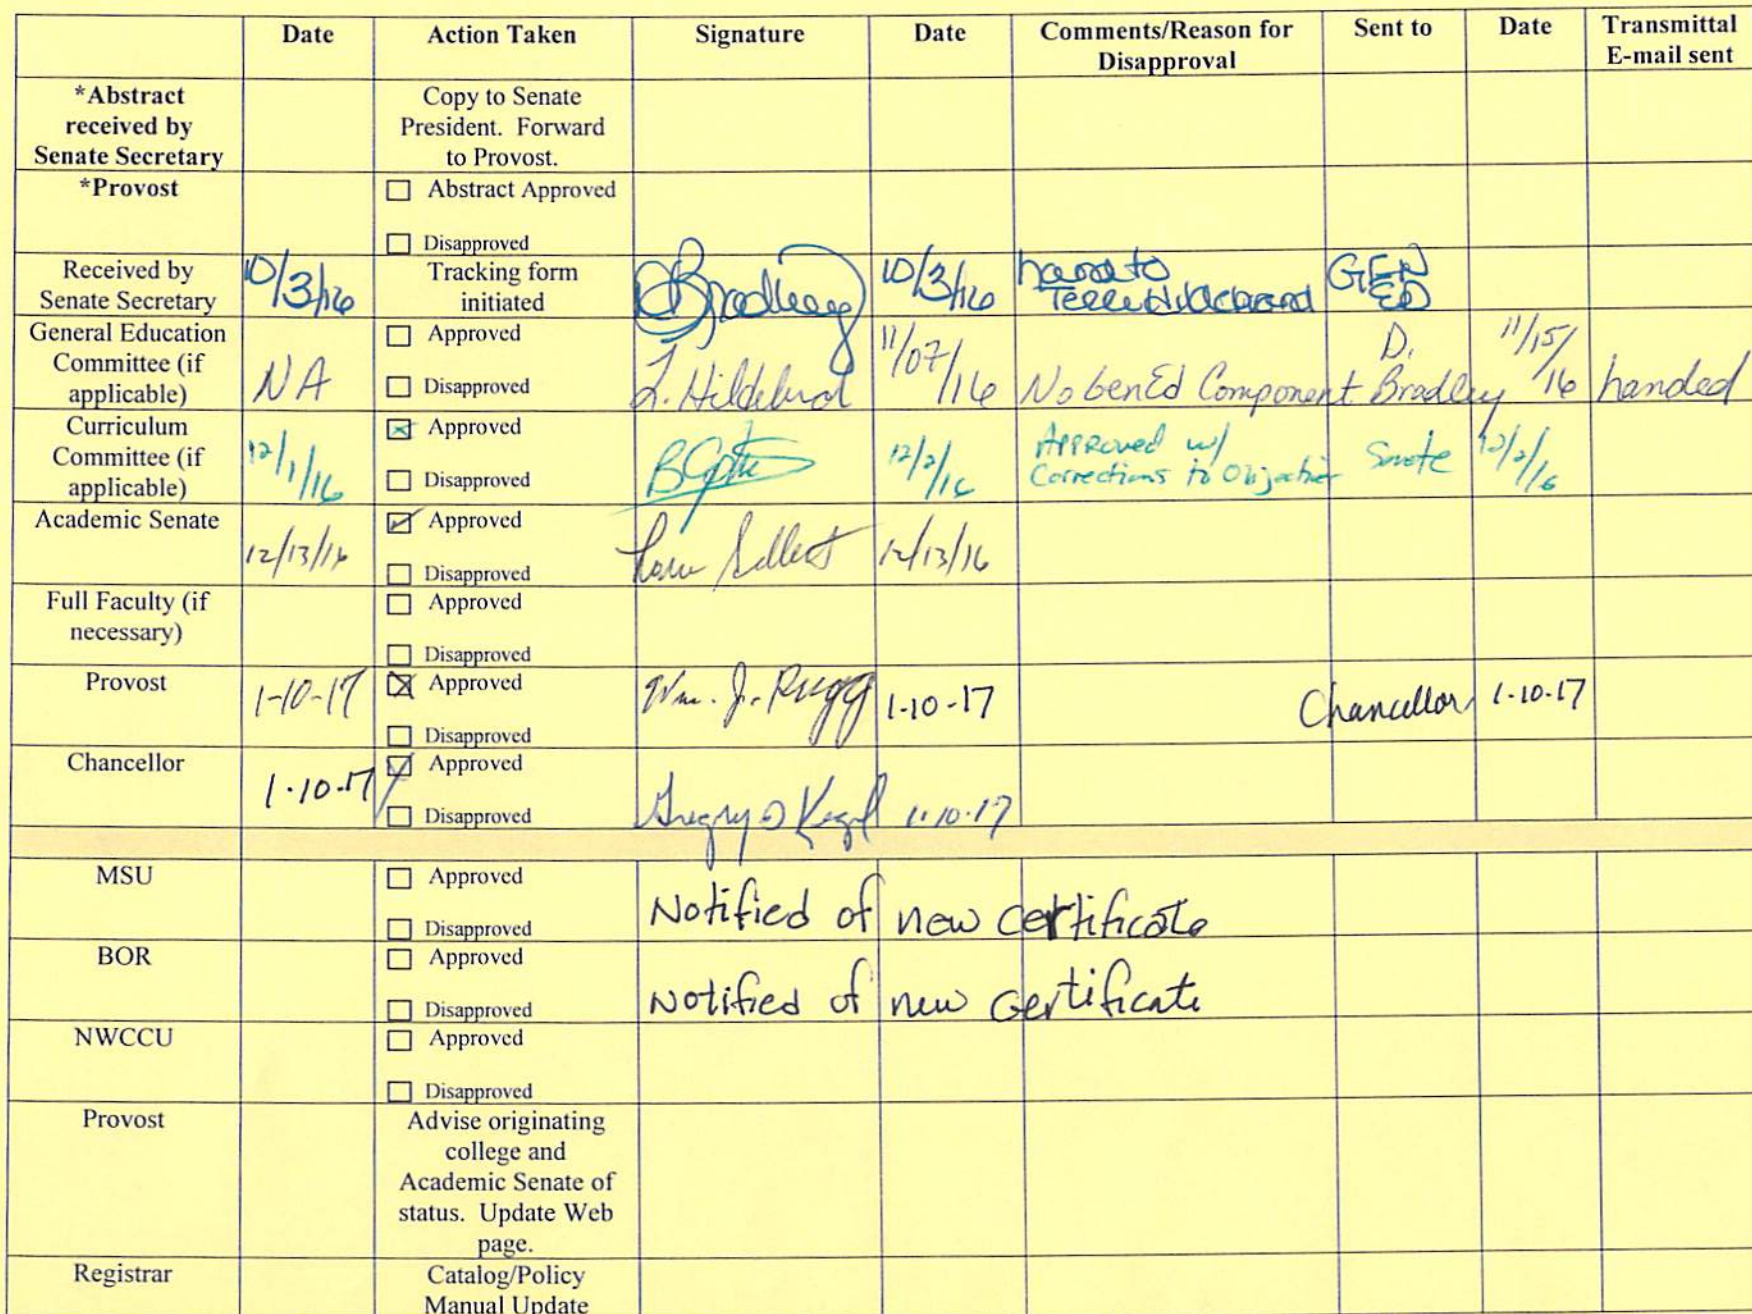 Date Action Taken Signature Date Comments/Reason for Disapproval Sent to Date Transmittal E-mail sent
*Abstract received by Senate Secretary
Copy to Senate President. Forward to Provost.
*Provost
☐ Abstract Approved
☐ Disapproved
Received by Senate Secretary
10/3/16
Tracking form initiated
Bradley
10/3/16
hand to
Terri Hildebrand
GEN
ED
General Education Committee (if applicable)
NA
☐ Approved
☐ Disapproved
11/07/16
No GenEd Component
D. Bradley
11/15/16
handed
Curriculum Committee (if applicable)
12/1/16
☒ Approved
☐ Disapproved
12/2/16
Approved w/
Corrections to
Senate
12/2/16
Academic Senate
12/13/16
☑ Approved
☐ Disapproved
12/13/16
Full Faculty (if necessary)
☐ Approved
☐ Disapproved
Provost
1-10-17
☒ Approved
☐ Disapproved
Wm. J. Rugg
1-10-17
Chancellor
1-10-17
Chancellor
1-10-17
☑ Approved
☐ Disapproved
Gregry D Kegel
1-10-17
MSU
☐ Approved
☐ Disapproved
Notified of new certificate
BOR
☐ Approved
☐ Disapproved
Notified of new certificate
NWCCU
☐ Approved
☐ Disapproved
Provost
Advise originating college and Academic Senate of status. Update Web page.
Registrar
Catalog/Policy Manual Update